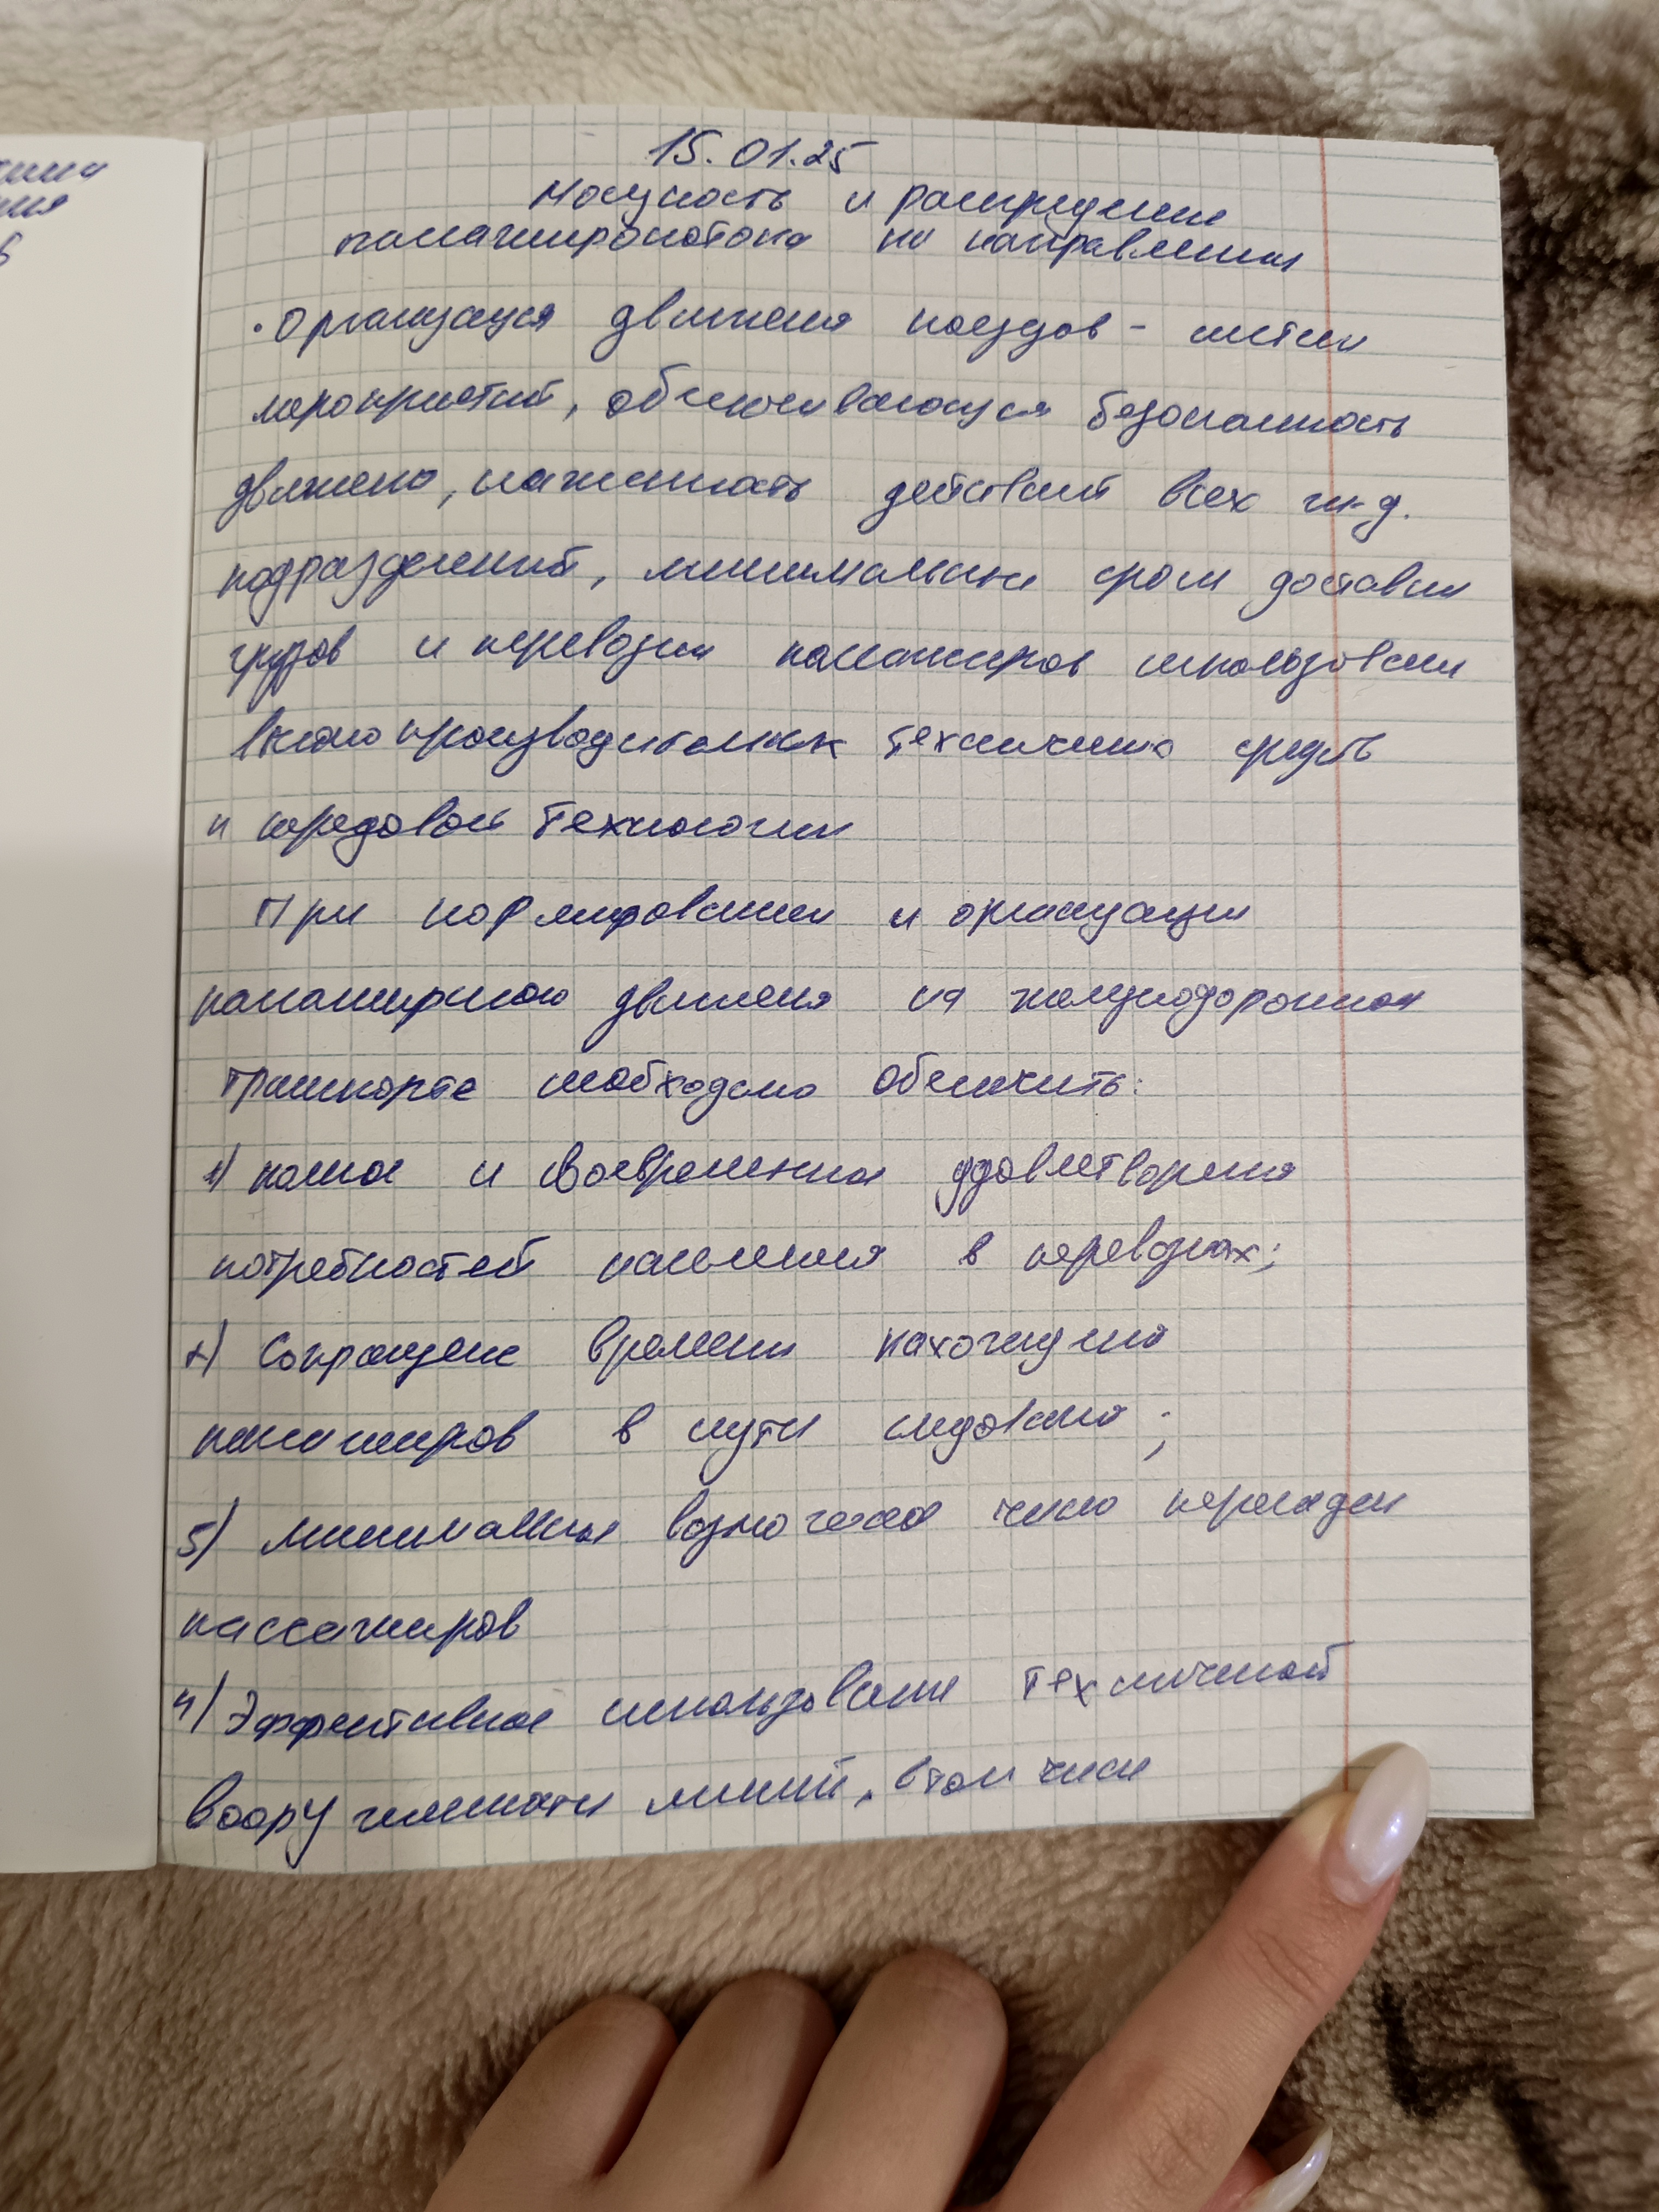 15.01.25
Мощность и распределение
пассажиропотока по направлениям
• Организация движения поездов - система
мероприятий, обеспечивающая безопасность
движения, слаженность действий всех ж.д.
подразделений, минимальные сроки доставки
грузов и перевозки пассажиров использование
высокопроизводительных технических средств
и передовой технологии
При нормировании и организации
пассажирского движения на железнодорожном
транспорте необходимо обеспечить:
1) полное и своевременное удовлетворения
потребностей населения в перевозках;
2) Сокращение времени нахождения
пассажиров в пути следования;
3) минимальное возможное число пересадки
пассажиров
4) Эффективное использование технической
вооруженности линий, в том числе